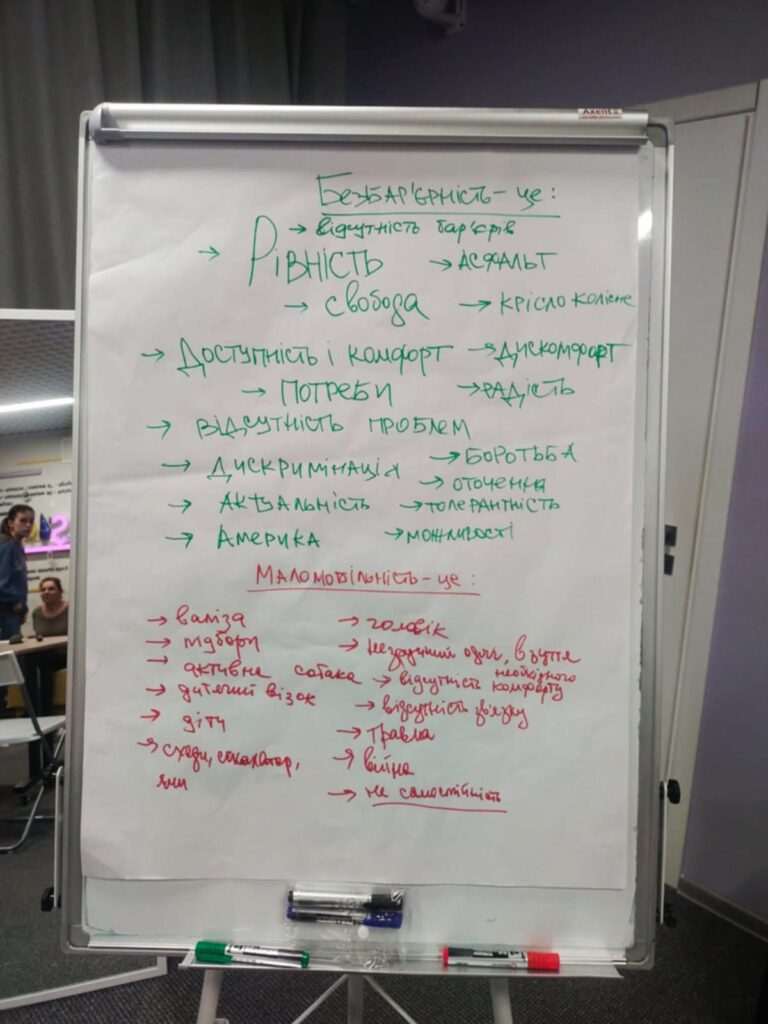 Axent
Безбар'єрність - це:
→ відсутність бар'єрів
→ Рівність → Асфальт
→ свобода → крісло колісне
→ Доступність і комфорт → Дискомфорт
→ Потреби → Радість
→ Відсутність проблем
→ Дискримінація → Боротьба
→ оточення
→ Актуальність → толерантність
→ Америка → можливості
Маломобільність - це:
→ валіза → чоловік
→ підбори → незручний одяг, взуття
→ активне собака → відсутність необхідного комфорту
→ дитячий візок → відсутність зв'язку
→ діти → травма
→ сходи, ескалатор, ями → війна
→ не самостійність